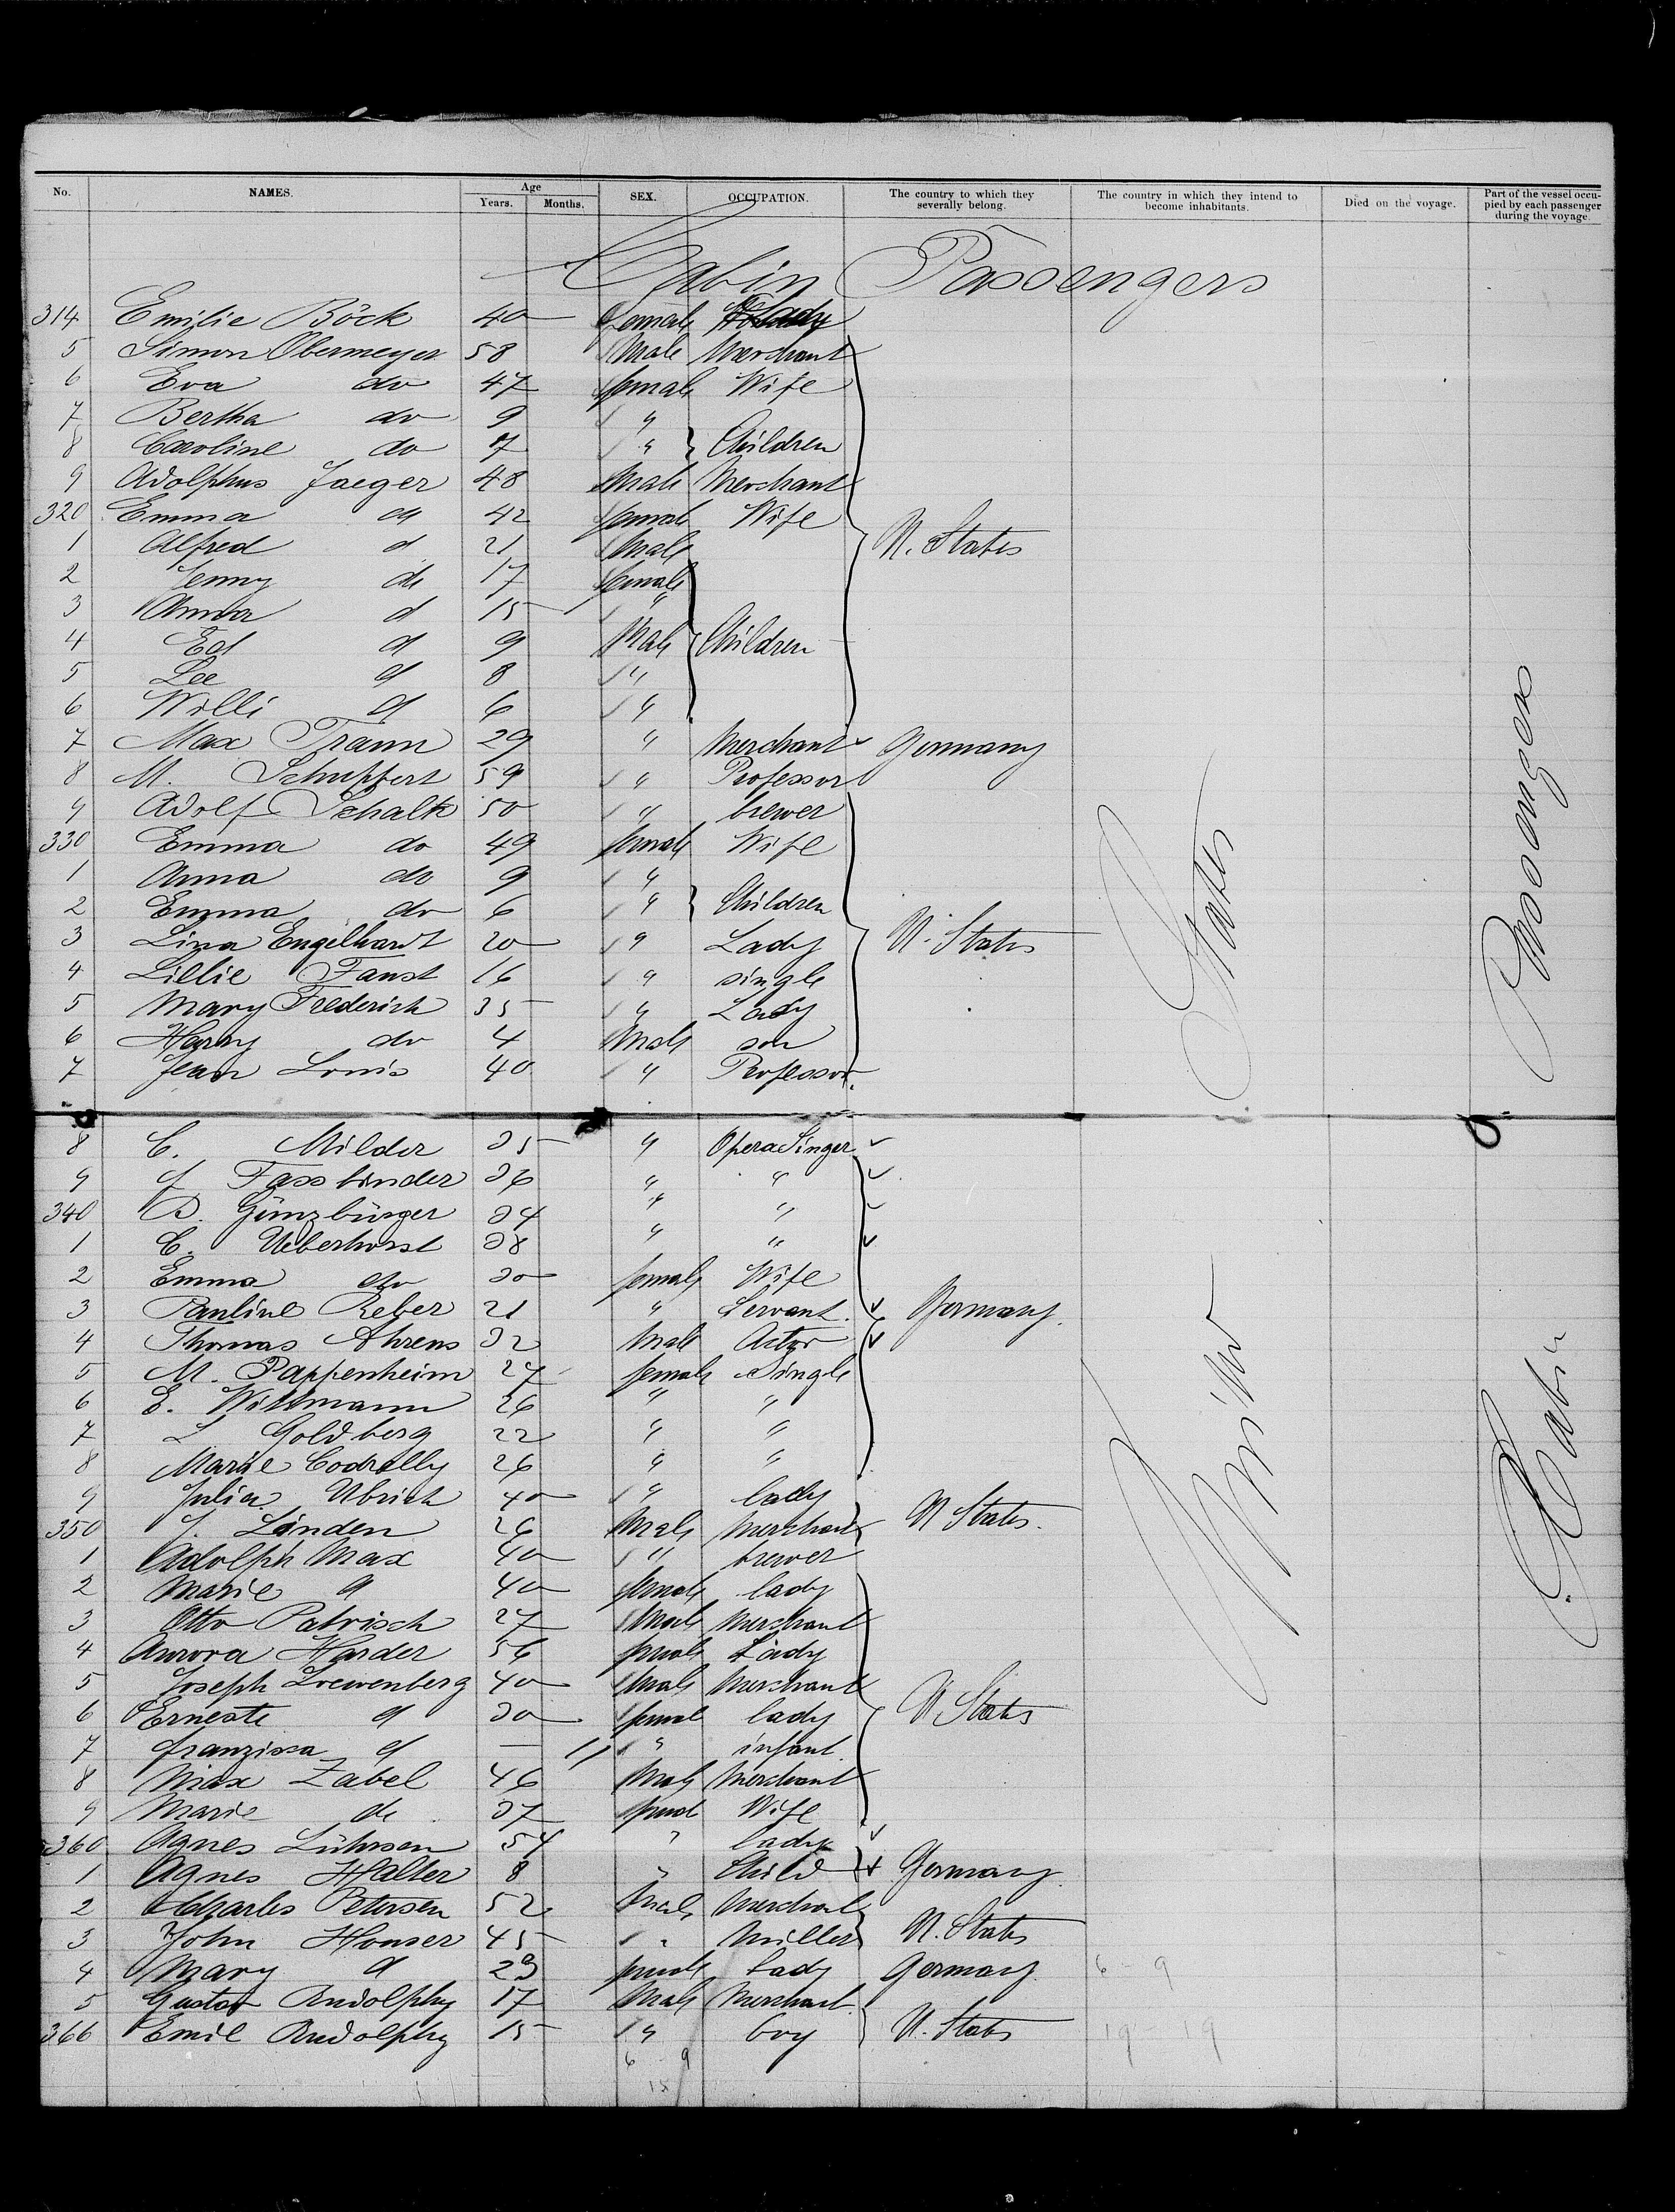 No. NAMES. Age Years. Months. SEX. OCCUPATION. The country to which they severally belong. The country in which they intend to become inhabitants. Died on the voyage. Part of the vessel occupied by each passenger during the voyage.
Cabin Passengers
314 Emilie Böck 40 female Lady
5 Simon Obermeyer 58 Male Merchant
6 Eva do 47 female Wife
7 Bertha do 9 "
8 Caroline do 7 " } Children
9 Adolphus Jaeger 48 Male Merchant
320 Emma d 42 female Wife
1 Alfred d 21 Male U. States
2 Jenny do 17 female
3 Anna d 15 "
4 Ed d 9 Male Children
5 Lee d 8 "
6 Willi d 6 "
7 Max Traun 29 " Merchant Germany
8 M. Schuppert 59 " Professor
9 Adolf Schalk 50 " brewer
330 Emma do 49 female Wife
1 Anna do 9 "
2 Emma do 6 " } Children
3 Lina Engelhardt 20 " Lady U. States
4 Lillie Faust 16 " single
5 Mary Frederich 35 " Lady
6 Harry do 4 Male son
7 Jean Louis 40 " Professor
8 C. Milder 35 " Opera Singer
9 J Fassbinder 36 " "
340 D. Günzbürger 34 " "
1 C. Ueberhorst 38 " "
2 Emma do 30 female Wife
3 Pauline Reber 21 " Servant Germany.
4 Thomas Ahrens 32 Male Actor
5 M. Pappenheim 27 female Single
6 E. Wittmann 26 " "
7 L Goldberg 22 " "
8 Marie Codrelly 26 " "
9 Julia Ulrich 40 " lady
350 J. Linden 26 Male Merchant U States.
1 Adolph Max 40 " brewer
2 Marie d 40 female lady
3 Otto Patrisch 27 Male Merchant
4 Aurora Harder 56 female Lady
5 Joseph Loewenberg 40 Male Merchant
6 Erneste d 30 female lady U States
7 franzisca d — 11 " infant
8 Max Zabel 46 Male Merchant
9 Marie do 37 female Wife
360 Agnes Lührsen 54 " lady
1 Agnes Halter 8 " Child Germany.
2 Charles Petersen 52 Male Merchant
3 John Honser 45 " Miller U. States
4 Mary d 23 female Lady Germany 6 - 9
5 Gustav Rudolphy 17 Male Merchant
366 Emil Rudolphy 15 " boy U. States 19 - 19
6 9
15
United States
Cabin Passengers